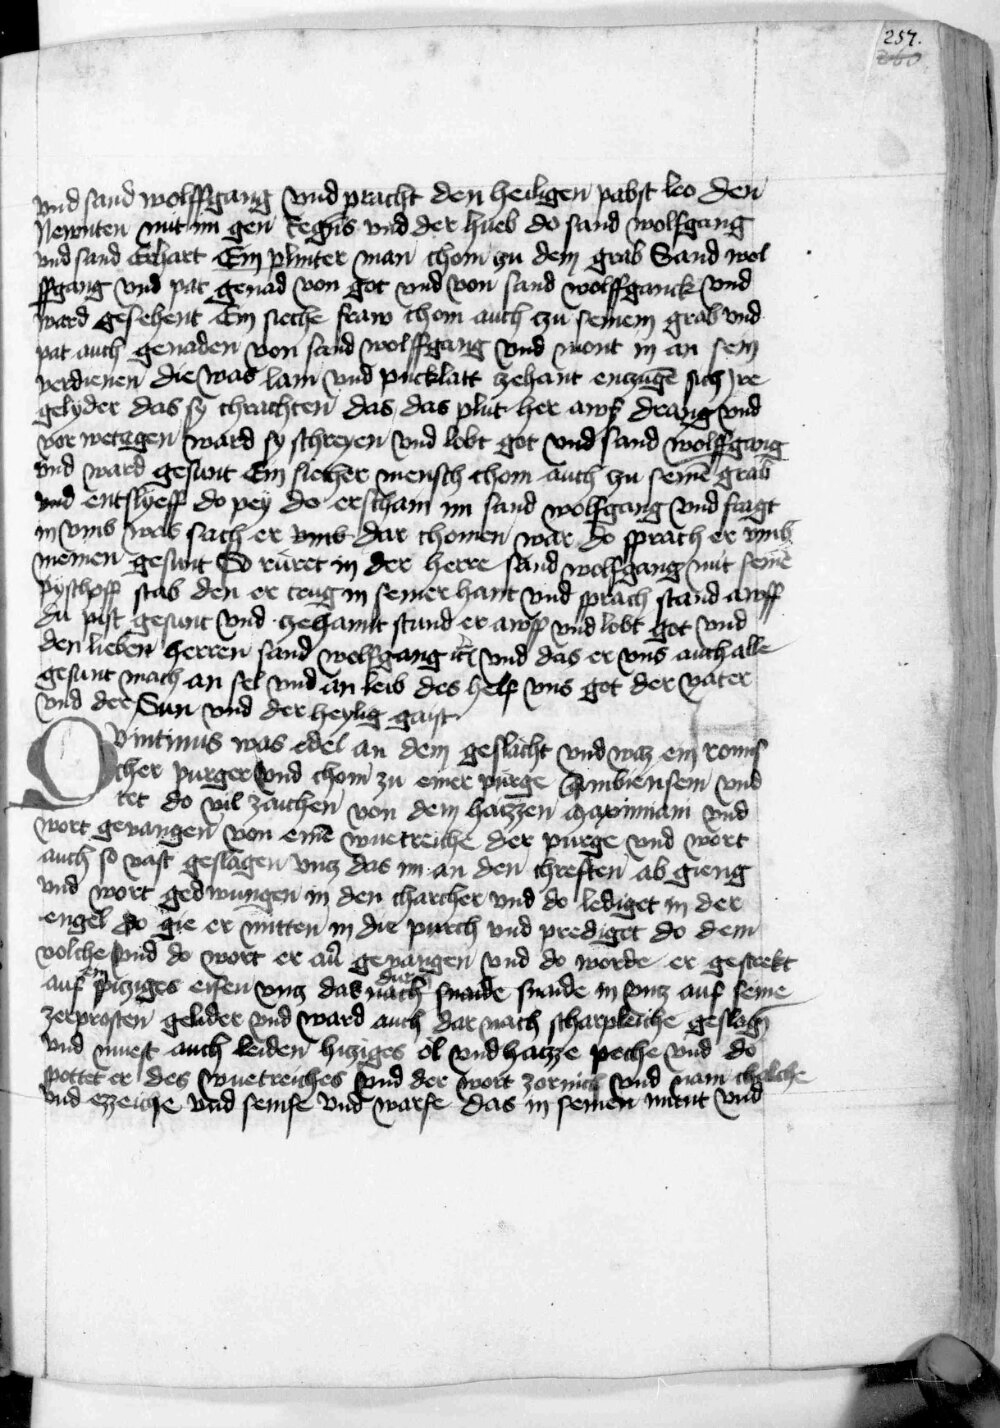 257.
260
vnd sand wolffgang vnd pracht den heiligen pabst leo den
Newnten mit im gen Regñs vnd der hueb do sand wolfgang
vnd sand Erhart Ein plinter man chom zu dem grab Sand wol
ffgang vnd pat genad von got vnd von sand wolffganck vnd
ward gesehent Ein sieche fraw chom auch zu seinem grab vnd
pat auch genaden von sand wolffgang vnd mont in an sein
verdienen die was lam vnd pucklatt zehant enzugē sich Jre
gelyder das sy chrachten das das plut her awß drang vnd
vor wetagen ward sy schreyen vnd lobt got vnd sand wolffgang
vnd ward gesunt Ein siecher mensch chom auch zu seinē grab
vnd entslyeff do pey do erscham im sand wolfgang vnd fragt
in vmb was sach er vmb dar chomen wår do sprach er vmb
meinen gesunt So rüret in der herre sand wolfgang mit seinē
pyscholff stab den er trug in seiner hant vnd sprach stand awff
du pist gesunt vnd zehannt stund er awff vnd lobt got vnd
den lieben herren sand wolfgang vnd das er vns auch alle
gesunt mach an sel vnd an leib des helf vns got der vater
vnd der Sun vnd der heylig gaist
Qvintinus was edel an dem geslacht vnd waz ein romis
cher purger vnd chom zu einer purge Ambiensem vnd
tet do vil zaichen von dem haizzen Maximiani vnd
wort gevangen von einē wuetreiche der purge vnd wort
auch so vast geslagen vntz das im an den chreften ab gieng
vnd wort gedwungen in den charcher vnd do lediget in der
engel do gie er mitten in die purch vnd prediget do dem
volche vnd do wort er aũ gevangen vnd do worde er gestrekt
auf ein spiziges eisen vnz das nach dur snaide snaide in vnz auf seine
zerprosten gelider vnd ward auch dar nach scharpleiche geslagñ
vnd muest auch leiden hiziges ol vnd haizze peche vnd do
spottet er des wuetreiches vnd der wort zornich vnd nam chalche
vnd ezzeiche vnd semfe vnd warfe das in seinen munt vnd